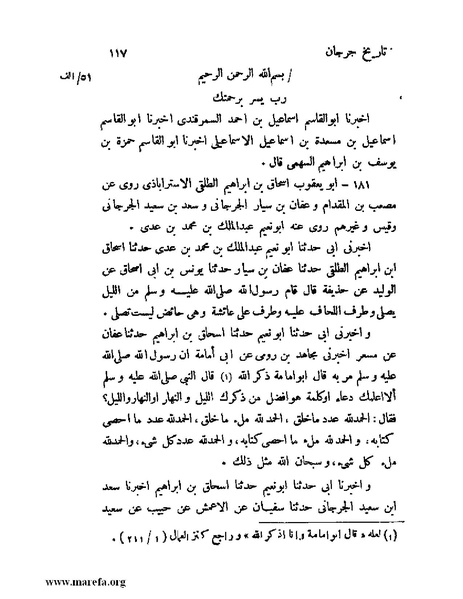 تاريخ جرجان ١١٧
/ بسم الله الرحمن الرحيم ٥١/ الف
رب يسر برحمتك
اخبرنا ابوالقاسم اسماعيل بن احمد السمرقندى اخبرنا ابوالقاسم
اسماعيل بن مسعدة بن اسماعيل الاسماعيلى اخبرنا ابو القاسم حمزة بن
يوسف بن ابراهيم السهمى قال .
١٨١ – ابو يعقوب اسحاق بن ابراهيم الطلقى الاستراباذى روى عن
مصعب بن المقدام و عفان بن سيار الجرجانى و سعد بن سعيد الجرجانى
وقبس و غيرهم روى عنه ابونعيم عبدالملك بن محمد بن عدى .
اخبرنى ابى حدثنا ابو نعيم عبدالملك بن محمد بن عدى حدثنا اسحاق
ابن ابراهيم الطلقى حدثنا عفان بن سيار حدثنا يونس بن ابى اسحاق عن
الوليد عن حذيفة قال قام رسول الله صلى الله عليه و سلم من الليل
يصلى وطرف اللحاف عليه وطرف على عائشة وهى حائض ليست تصلى .
و اخبرنى ابى حدثنا ابو نعيم حدثنا اسحاق بن ابراهيم حدثنا عفان
عن مسعر اخبرنى مجاهد بن رومى عن ابى أمامة ان رسول الله صلى الله
عليه و سلم مر به قال ابوامامة ذكر الله (١) قال النبى صلى الله عليه و سلم
ألا اعلمك دعاء اوكلمة هوافضل من ذكرك الليل و النهار اوالنهار والليل؟
فقال: الحمد لله عدد ما خلق، الحمد لله ملء ما خلق، الحمد لله عدد ما احصى
كتابه، و الحمد لله ملء ما احصى كتابه، و الحمد لله عدد كل شىء، والحمد لله
ملء كل شىء، و سبحان الله مثل ذلك .
و اخبرنا ابى حدثنا ابونعيم حدثنا اسحاق بن ابراهيم اخبرنا سعد
ابن سعيد الجرجانى حدثنا سفيان عن الاعمش عن حبيب عن سعيد
(١) لعله « قال ابو امامة و انا اذكر الله » و راجع كنز العمال ( ١ / ٢١١ ) .
www.marefa.org